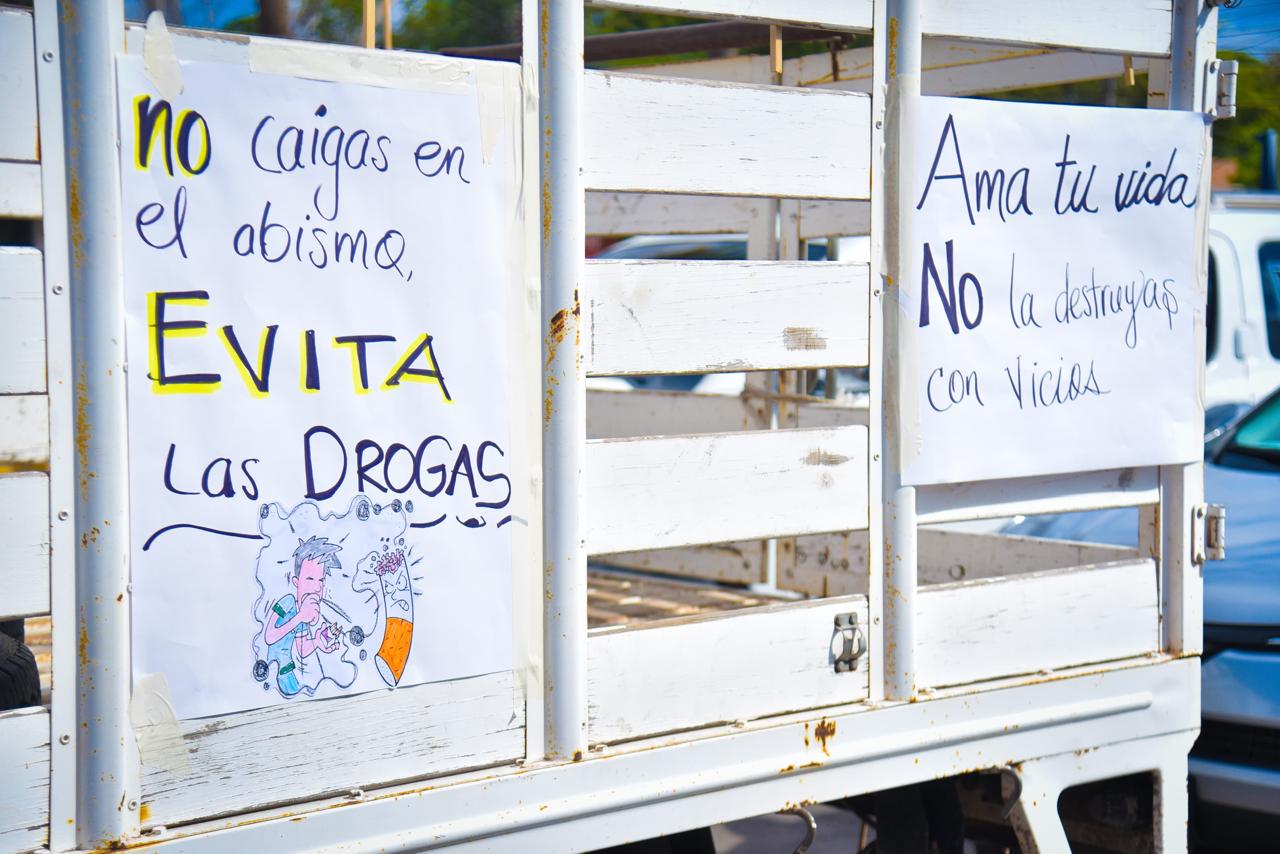 no caigas en
el abismo,
EVITA
Las DROGAS
Ama tu vida
No la destruyas
con vicios